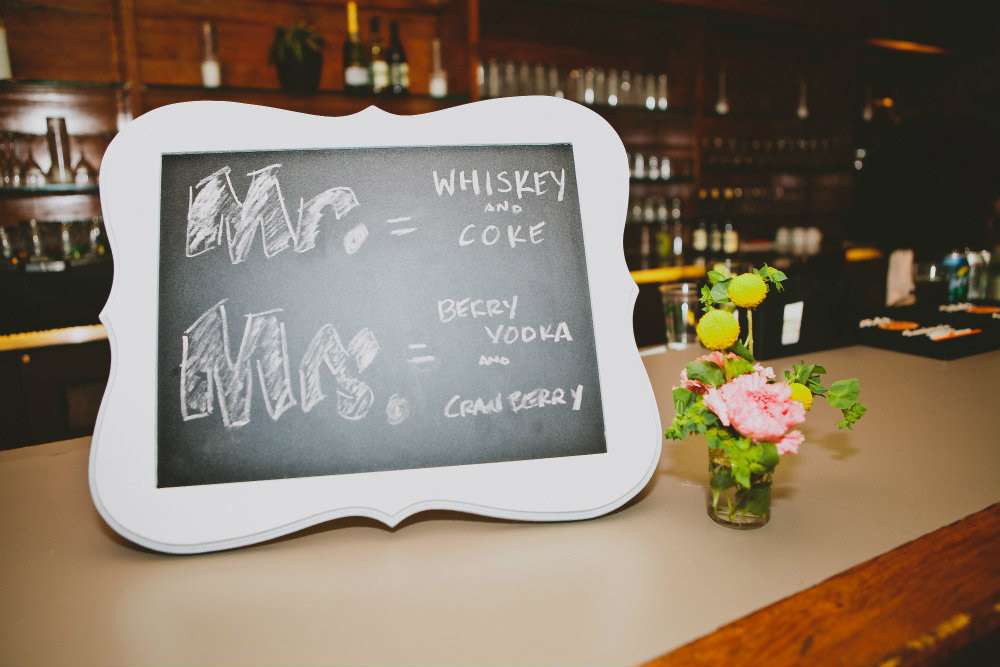 Mr. = WHISKEY
AND
COKE
Mrs. = BERRY
VODKA
AND
CRANBERRY